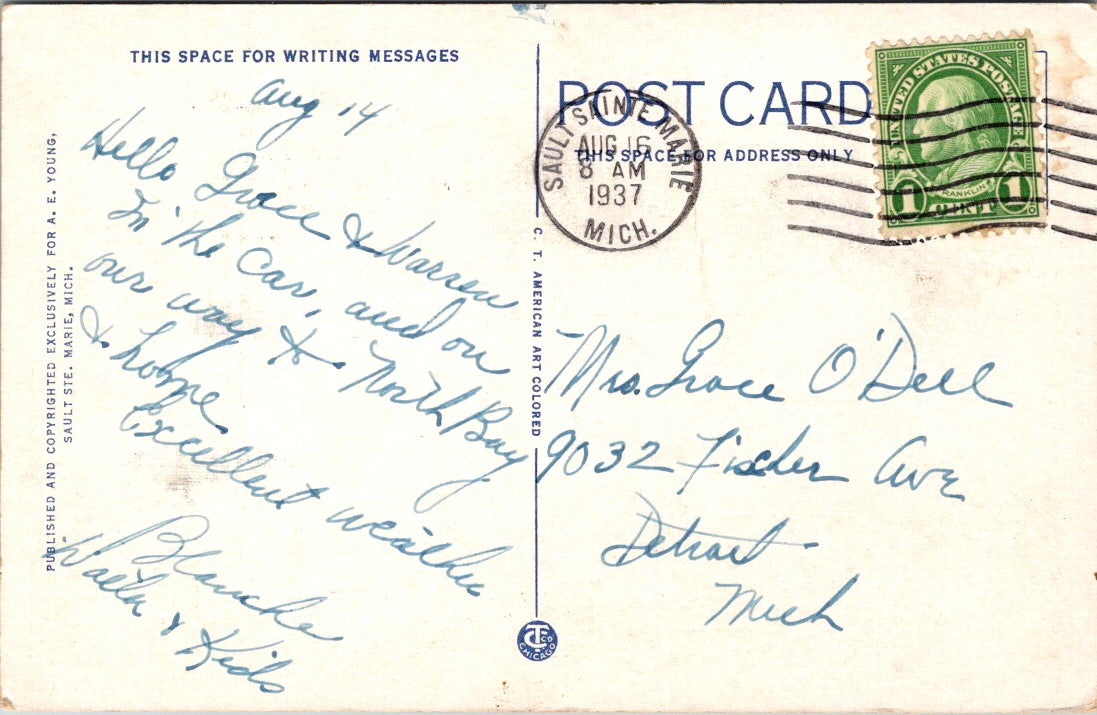 THIS SPACE FOR WRITING MESSAGES
Aug 14
Hello Grace & Warren
In the car, and on
our way to North Bay
& home
Excellent weather
Blanche
Walter & Kids
PUBLISHED AND COPYRIGHTED EXCLUSIVELY FOR A. E. YOUNG,
SAULT STE. MARIE, MICH.
C. T. AMERICAN ART COLORED
CT CO
CHICAGO
POST CARD
THIS SPACE FOR ADDRESS ONLY
SAULT SAINTE MARIE
AUG 16
8 AM
1937
MICH.
UNITED STATES POSTAGE
FRANKLIN
1 CENT 1
Mrs. Grace O'Dell
9032 Fischer Ave
Detroit
Mich